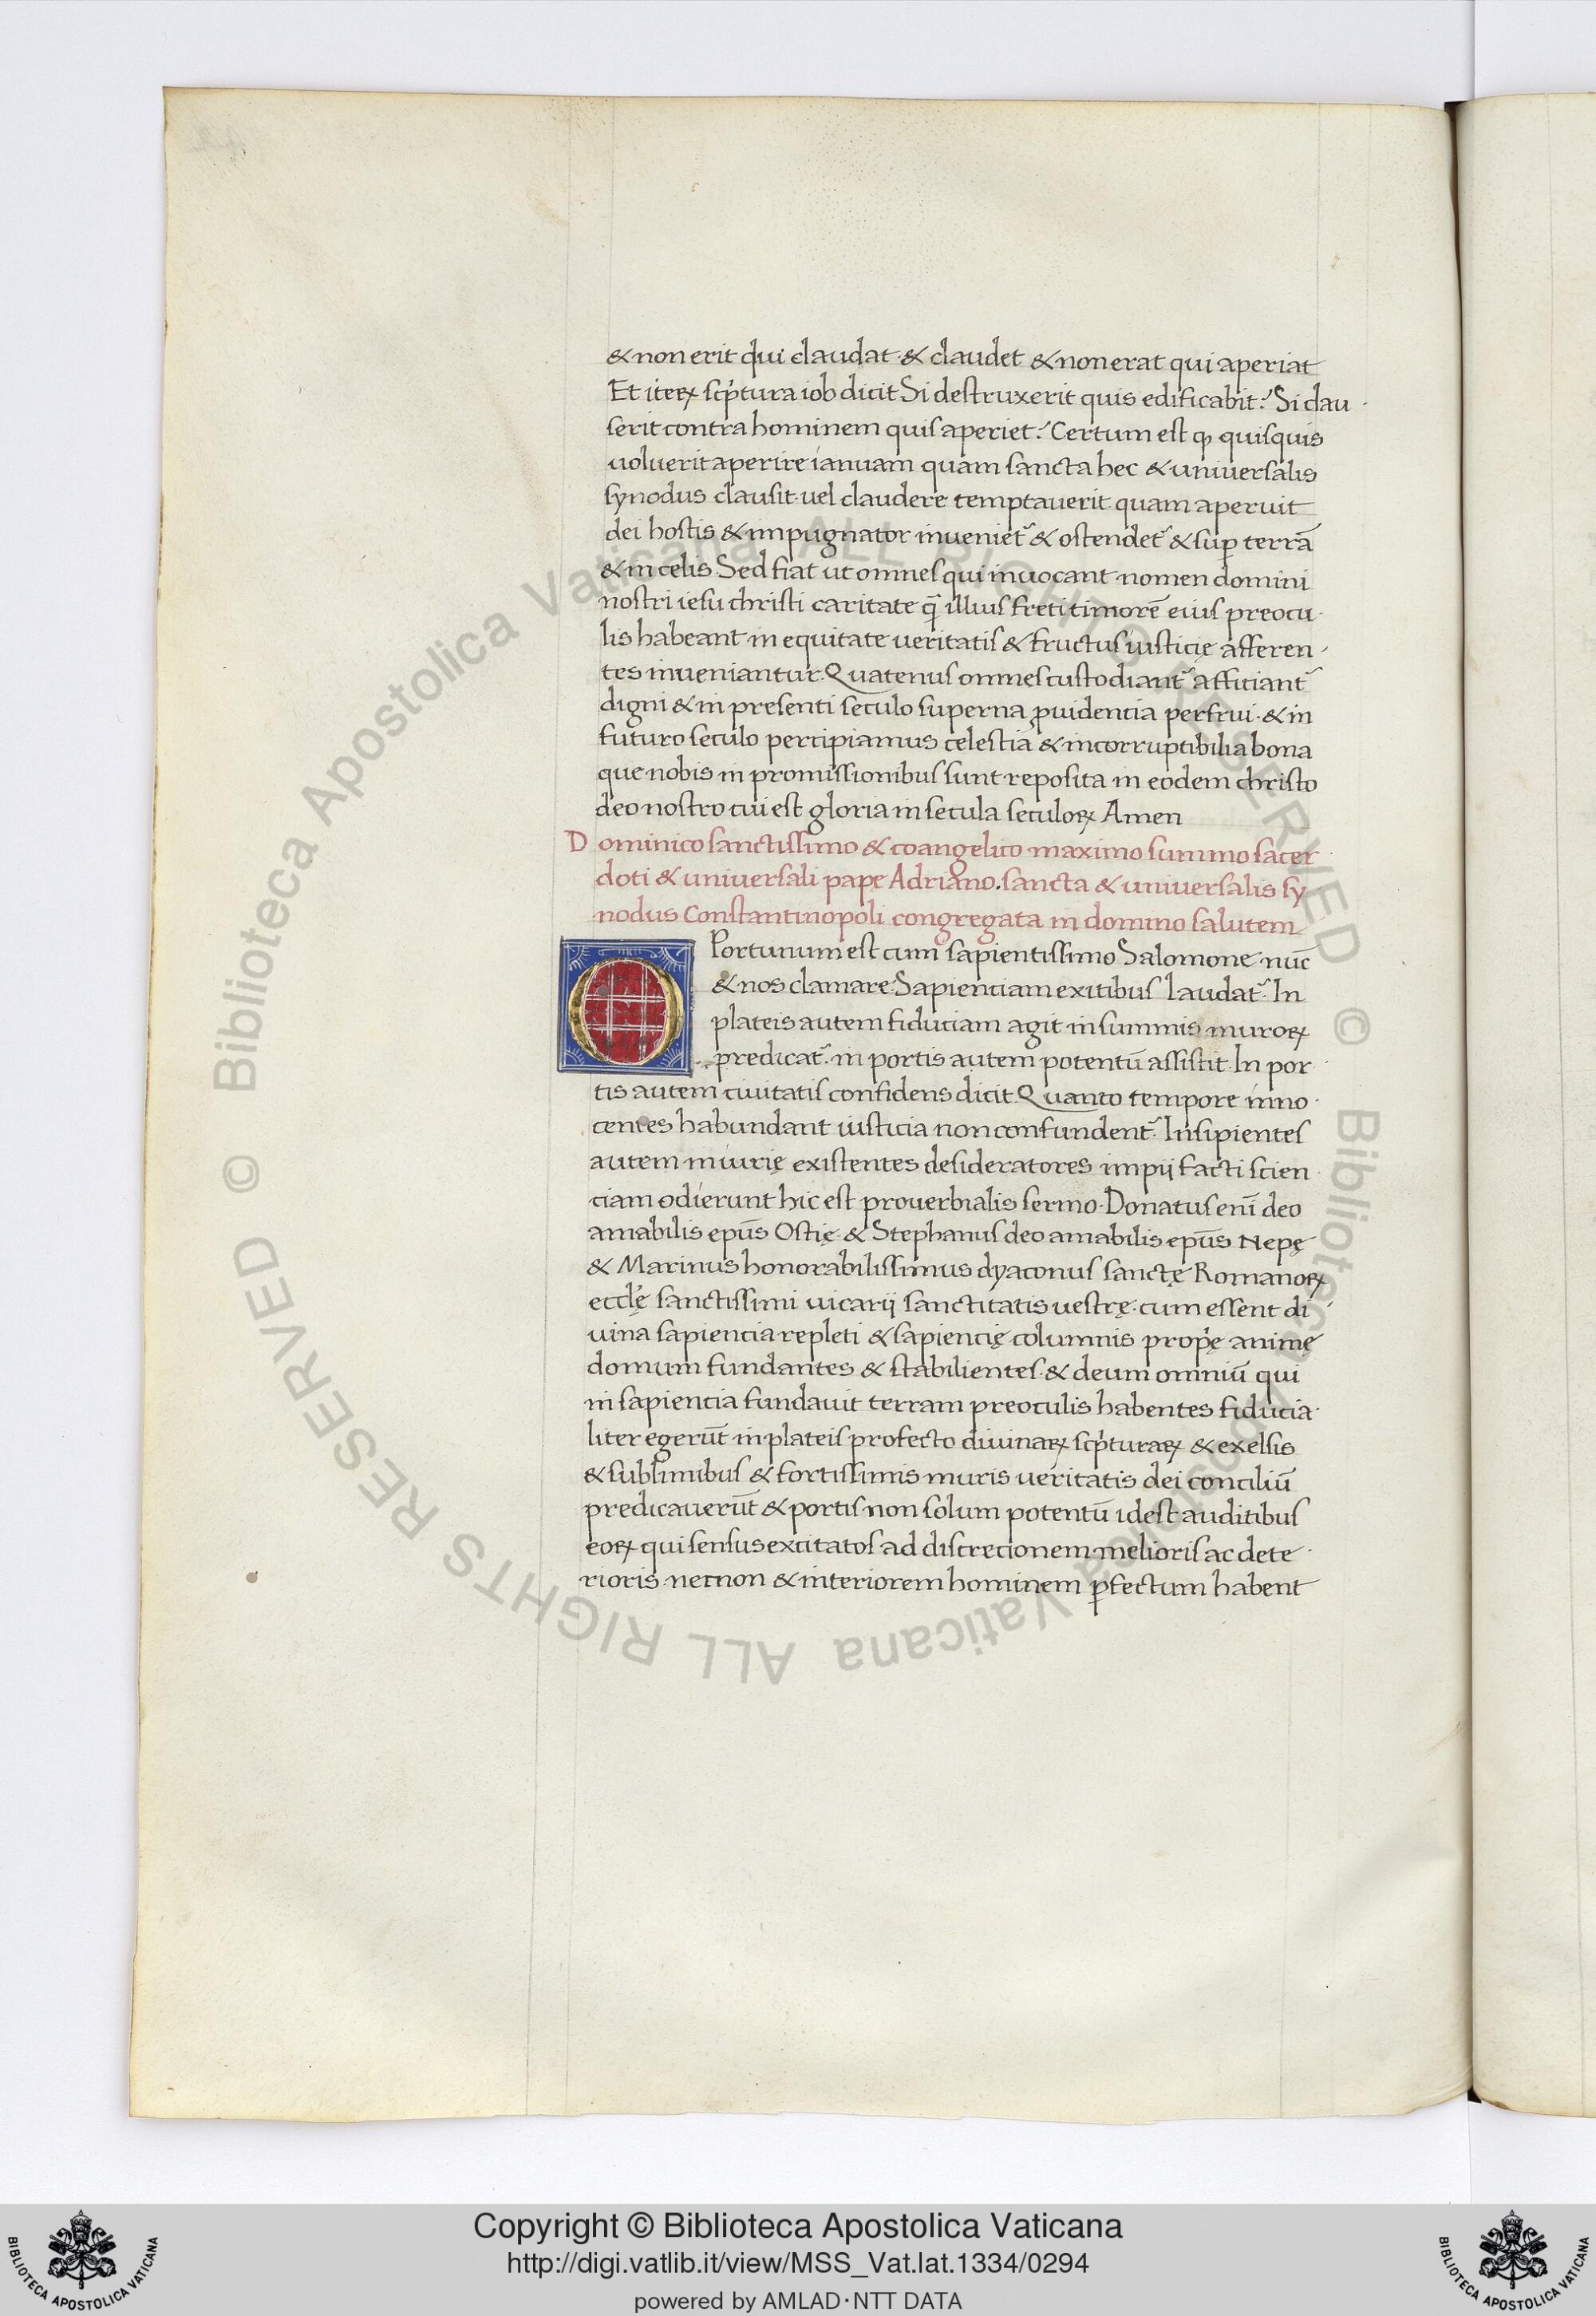 & non erit qui claudat & claudet & non erat qui aperiat
Et iterꝝ scp̓tura iob dicit Si destruxerit quis edificabit? Si clau
serit contra hominem quis aperiet? Certum est ꝙ quisquis
uoluerit aperire ianuam quam sancta hec & uniuersalis
synodus clausit uel claudere temptauerit quam aperuit
dei hostis & impugnator inueniet᷑ & ostendet᷑ & suꝑ terrā
& in celis. Sed fiat ut omnes qui inuocant nomen domini
nostri iesu christi caritate q̄ illius freti timorē eius preocu
lis habeant in equitate ueritatis & fructus iusticię afferen
tes inueniantur. Quatenus omnes custodiant᷑ afficiant᷑
digni & in presenti seculo superna ꝓuidencia perfrui. & in
futuro seculo percipiamus celestia & incorruptibilia bona
que nobis in promissionibus sunt reposita in eodem christo
deo nostro cui est gloria in secula seculoꝝ Amen
Dominico sanctissimo & coangelico maximo summo sacer
doti & uniuersali papę Adriano. sancta & uniuersalis sy
nodus Constantinopoli congregata in domino salutem
OPortunum est cum sapientissimo Salomone nūc
& nos clamare. Sapienciam exitibus laudat᷑. In
plateis autem fiduciam agit in summis muroꝝ
predicat᷑. in portis autem potentū assistit. In por
tis autem ciuitatis confidens dicit. Quanto tempore inno
centes habundant iusticia non confundent᷑. Insipientes
autem iniurię existentes desideratores impij facti scien
ciam odierunt hic est prouerbialis sermo. Donatus enī deo
amabilis ep̄us Ostię & Stephanus deo amabilis ep̄us Nepę
& Marinus honorabilissimus dyaconus sanctę Romanoꝝ
eccl̓ę sanctissimi uicarij sanctitatis uestrę cum essent di
uina sapiencia repleti & sapiencię columnis prop̓ę animę
domum fundantes & stabilientes. & deum omniū qui
in sapiencia fundauit terram preoculis habentes fiducia
liter egerūt in plateis profecto diuinaꝝ scp̓turaꝝ & exelsis
& sublimibus & fortissimis muris ueritatis dei conciliū
predicauerūt & portis non solum potentū idest auditibus
eoꝝ qui sensus excitatos ad discrecionem melioris ac dete
rioris necnon & interiorem hominem ꝑfectum habent
© Biblioteca Apostolica Vaticana ALL RIGHTS RESERVED © Biblioteca Apostolica Vaticana ALL RIGHTS RESERVED
Copyright © Biblioteca Apostolica Vaticana
http://digi.vatlib.it/view/MSS_Vat.lat.1334/0294
powered by AMLAD·NTT DATA
BIBLIOTECA APOSTOLICA VATICANA
BIBLIOTECA APOSTOLICA VATICANA